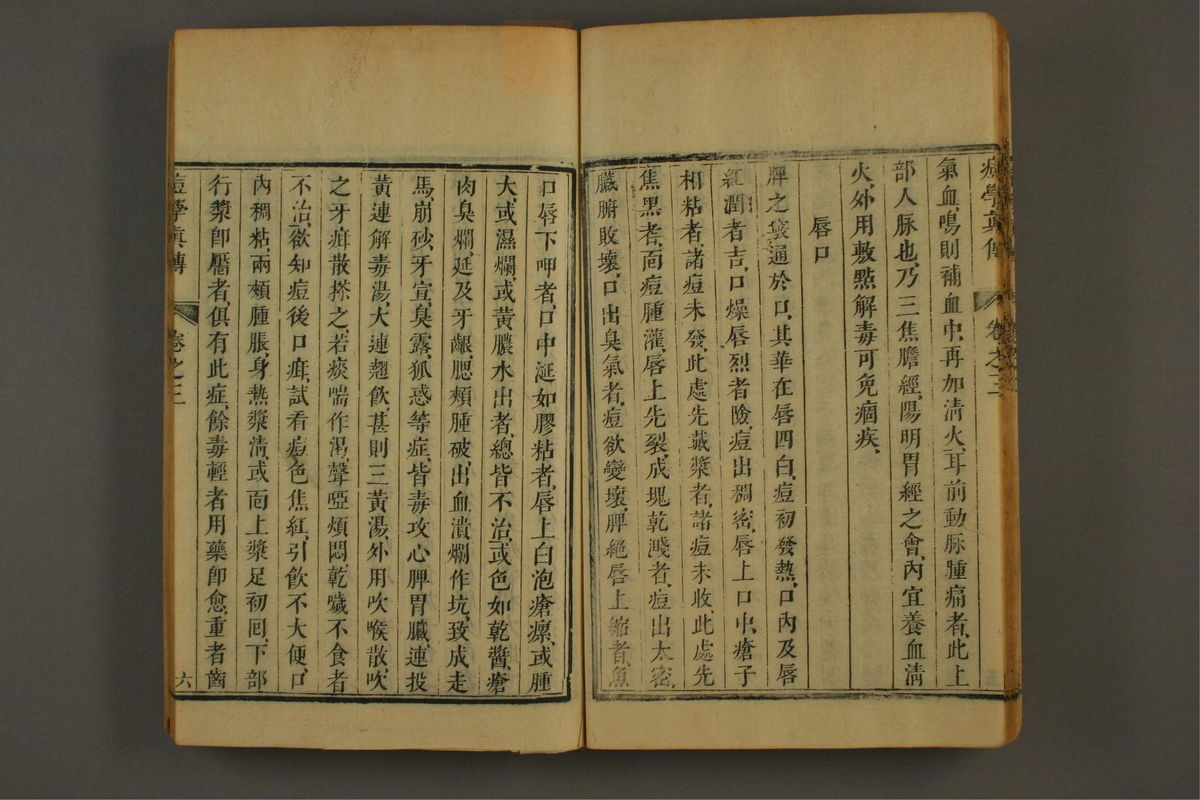 痘學眞傳 卷之三 五
氣血鳴則補血中再加淸火耳前動脉腫痛者此上
部人脉也乃三焦膽經陽明胃經之會內宜養血淸
火外用敷㸃解毒可免痼疾
唇口
脾之竅通於口其華在唇四白痘初發熱口內及唇
紅潤者吉口燥唇烈者險痘出稠密唇上口中瘡子
相粘者諸痘未發此處先戴漿者諸痘未收此處先
焦黑者面痘腫灌唇上先裂成塊乾濺者痘出太密
臟腑敗壞口出臭氣者痘欲變壞脾絕唇上縮者魚
口唇下呷者口中涎如膠粘者唇上白泡瘡瘰或腫
大或濕爛或黃膿水出者總皆不治或色如乾醬瘡
肉臭爛延及牙齦腮頰腫破出血潰爛作坑致成走
馬崩砂牙宣臭露狐惑等症皆毒攻心脾胃臟連投
黃連解毒湯大連翹飮甚則三黃湯外用吹喉散吹
之牙疳散搽之若痰喘作渴聲啞煩悶乾噦不食者
不治欲知痘後口疳試看痘色焦紅引飮不大便口
內稠粘兩頰腫脹身熱漿淸或面上漿足初囘下部
行漿卽靨者俱有此症餘毒輕者用藥卽愈重者齒
痘學眞傳 卷之三 六